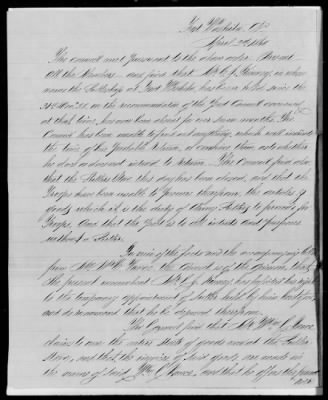 Fort Washita, C.N.
April 2d 1860
The Council met pursuant to the above order. Present
All the Members and find that Mr. C. J. Fennay, in whose
name the Sutlership at Fort Washita has been held since the
31st Dec. 58, on the recommendation of the Post Council convened
at that time, has now been absent for over seven months. The
Council has been unable to find out anything, which will indicate
the time of his probable return, or evidence them as to whether
he does or does not intend to return. The Council find also
that the Sutlers Store this day has been closed, and that the
Troops have been unable to procure therefrom, the articles &
goods which it is the duty of Army Sutlers to provide for
Troops. And that the post is to all intents and purposes
without a Sutler.
In view of the facts and the accompanying letter
from Mr. Wm. C. the Council is of the opinion that
the present incumbent Mr. C. J. has forfeited his right
to the temporary appointment of Sutler held by him heretofore
and do recommend that he be deposed therefrom.
The Council find that Mr. Wm. C.
claims to own the entire stock of goods amount at the Sutlers
Store, and that the invoices of said goods are made in
the name of said Wm. C. and that he offers the present